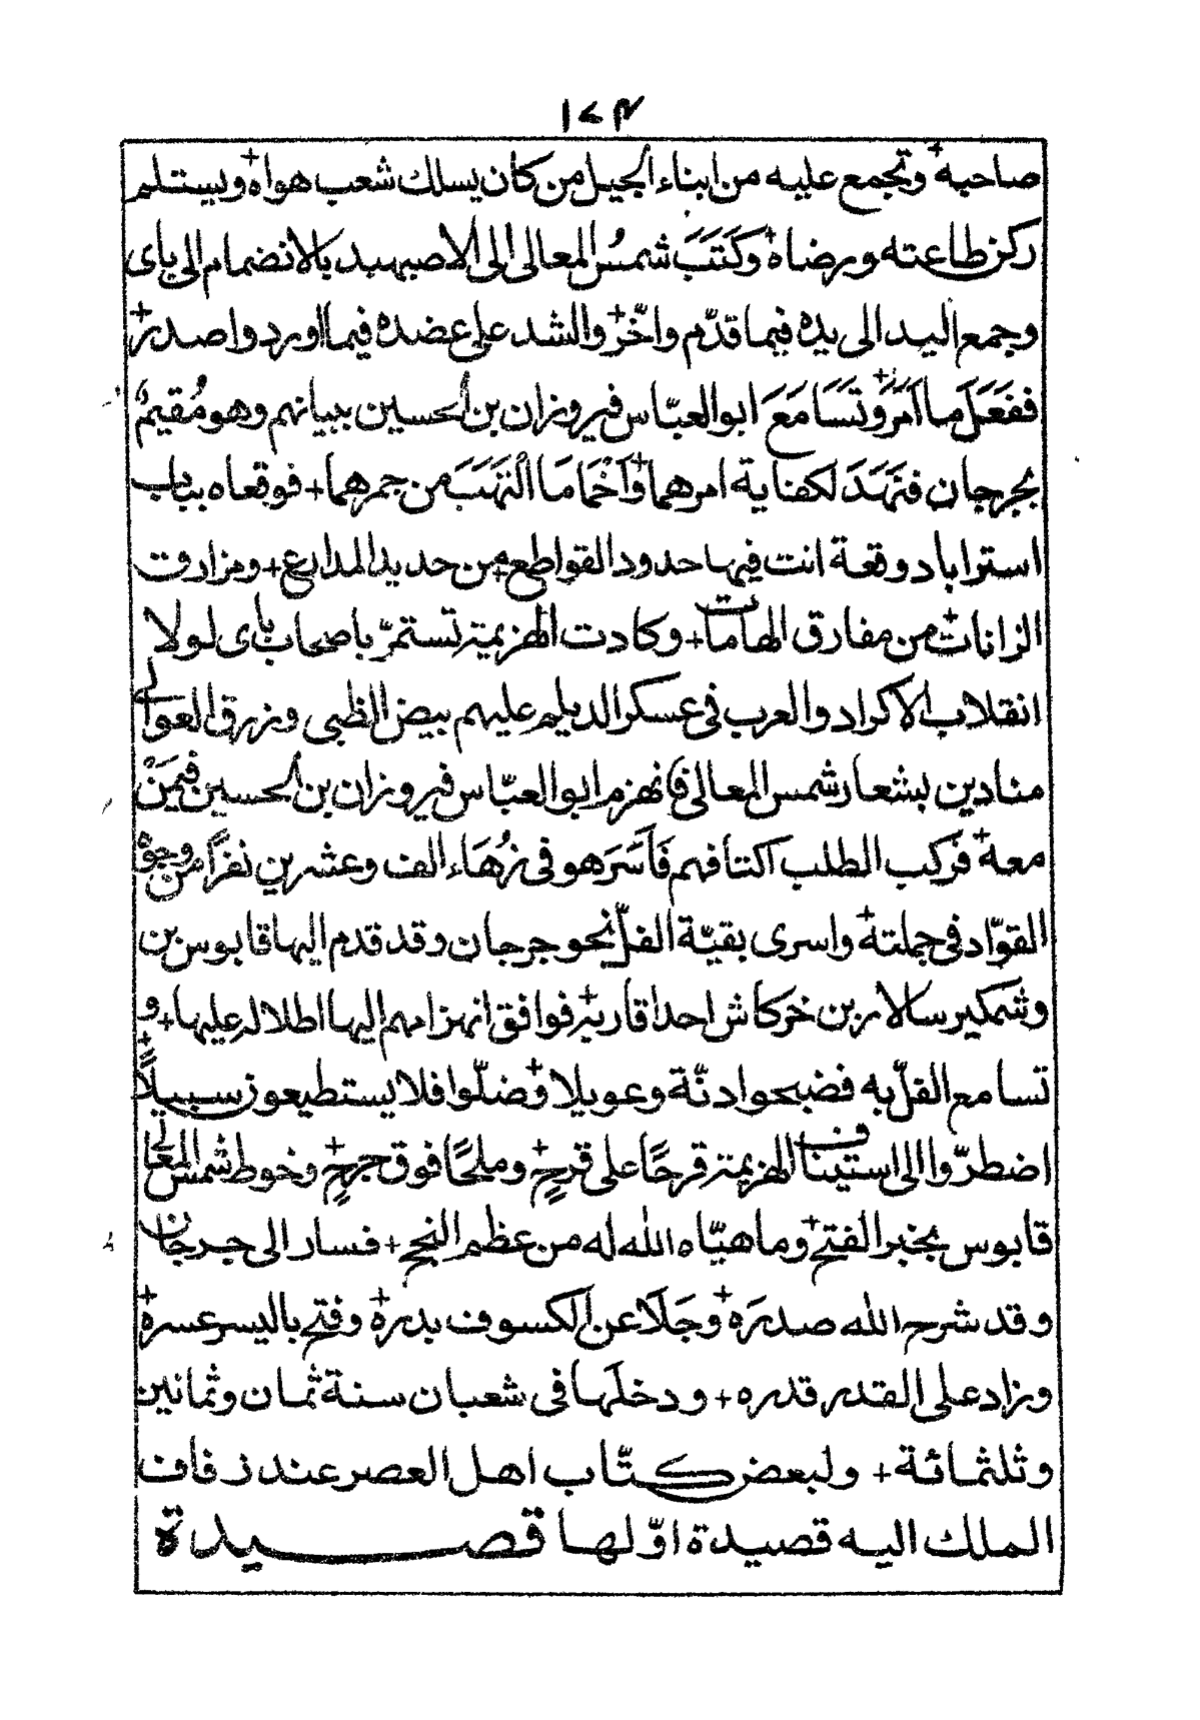 ۱۷۴
صاحبه + وتجمع عليه من ابناء الجيل من كان يسلك شعب هواه + ويستلم
ركن طاعته ورضاه + وكَتَبَ شمسُ المعالى الى الاصبهبد بالانضمام الى باى
وجمع اليد الى يده فيما قدّم واخّر + والشد على عضده فيما اورد واصدر +
ففَعَلَ ما اَمَرَ + وتَسَامَعَ ابو العبّاس فيروزان بن الحسين ببيانهم وهو مُقيمٌ
بجرجان فنَهَدَ لكفاية امرهما + وَاَخْمَا مَا الْتَهَبَ من جمرهما + فوقعاه بباب
استراباد وقعة انت فيها حدود القواطع + من حديد المدارع + ومزارق
الزانات + من مفارق الهامات + وكادت الهزيمة تستمرّ باصحاب باى لولا
انقلاب الاكراد والعرب فى عسكر الديلم عليهم ببيض الظبى وزرق العوالى
منادين بشعار شمس المعالى فانهزم ابو العبّاس فيروزان بن الحسين فيمَنْ
معه + فركب الطلب اكتافهم فَاَسَرَ هو فى زُهَاء الف وعشرين نفرًا من وجوه
القوّاد فى جملته + واسرى بقيّة الفلّ نحو جرجان وقد قدم اليها قابوس بن
وشمكير سالار بن خركاش احد اقاربه + فوافق انهزامهم اليها اطلاله عليها + و
تسامع الفلّ به فضبحوا دنّة وعويلا + وضلّوا فلا يستطيعون سبيلاً +
اضطرّوا الى استيناف الهزيمة قرحًا على قرحٍ + وملحًا فوق جرحٍ + وخوطب شمس المعالى
قابوس بخبر الفتح + وما هيّاه الله له من عظم النجح + فسار الى جرجان
وقد شرح الله صدرَه + وجَلَا عن الكسوف بدره + وفتح باليسر عسره +
وزاد على القدر قدره + ودخلها فى شعبان سنة ثمان وثمانين
وثلثمائة + ولبعض كتّاب اهل العصر عند زفاف
الملك اليه قصيدة اوّلها قصيدة